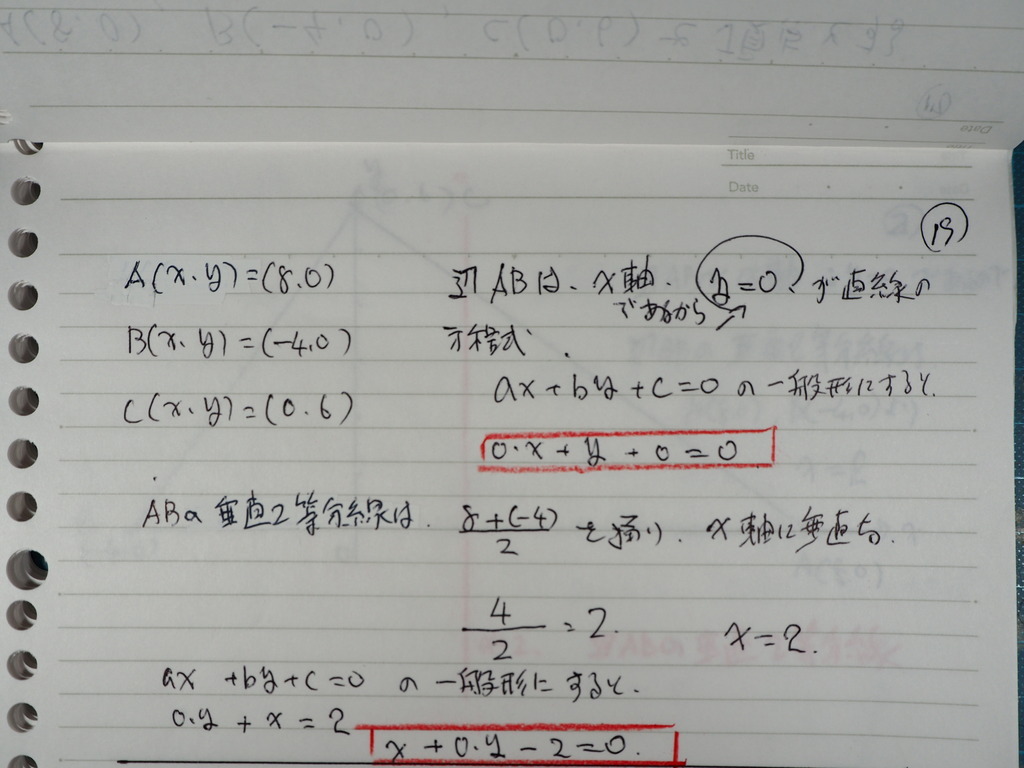 A(8.0) B(-4.0) C(0.6)
Title
Date
19
A(x.y)=(8.0) 辺ABは、x軸. y=0. が直線の
であるから
B(x.y)=(-4.0) 方程式.
ax+by+c=0 の一般形にすると.
C(x.y)=(0.6)
0・x+y+0=0
ABの垂直2等分線は. 8+(-4)/2 を通り. x軸に垂直な.
4/2=2. x=2.
ax+by+c=0 の一般形にすると.
0.y+x=2
x+0.y-2=0.